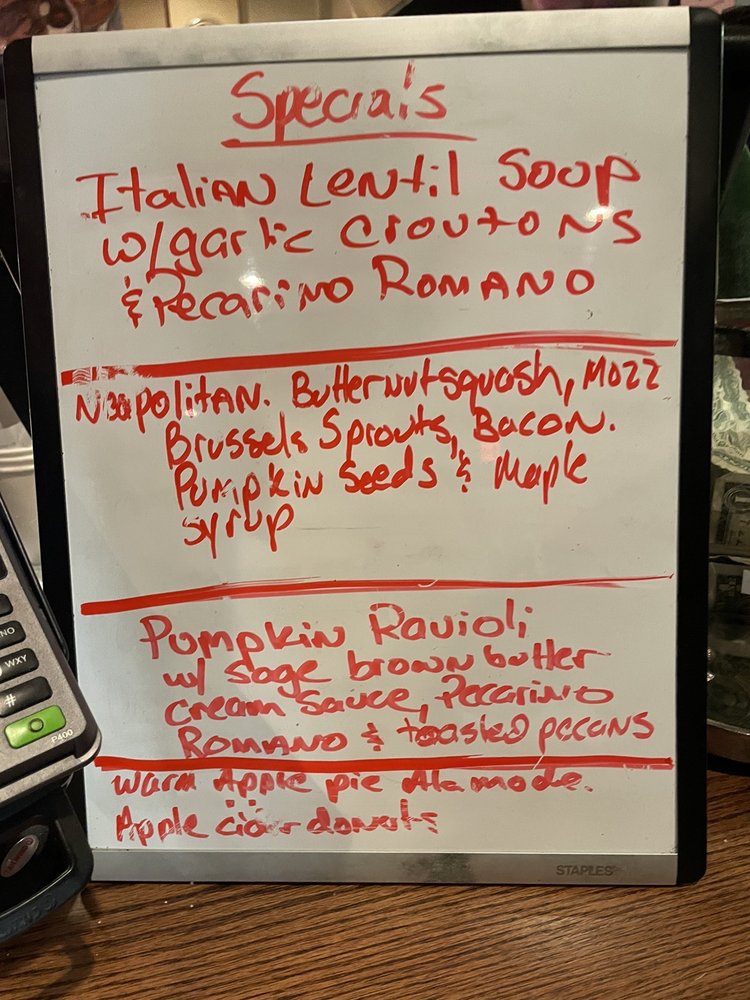 Specials
Italian Lentil Soup
w/garlic croutons
& Pecarino Romano
Neapolitan. Butternut squash, Mozz
Brussels Sprouts, Bacon.
Pumpkin Seeds & Maple
syrup
Pumpkin Ravioli
w/ sage brown butter
cream sauce, Pecarino
Romano & toasted pecans
warm Apple pie Alamode.
Apple cider donuts
STAPLES
NO
WXY
#
P400